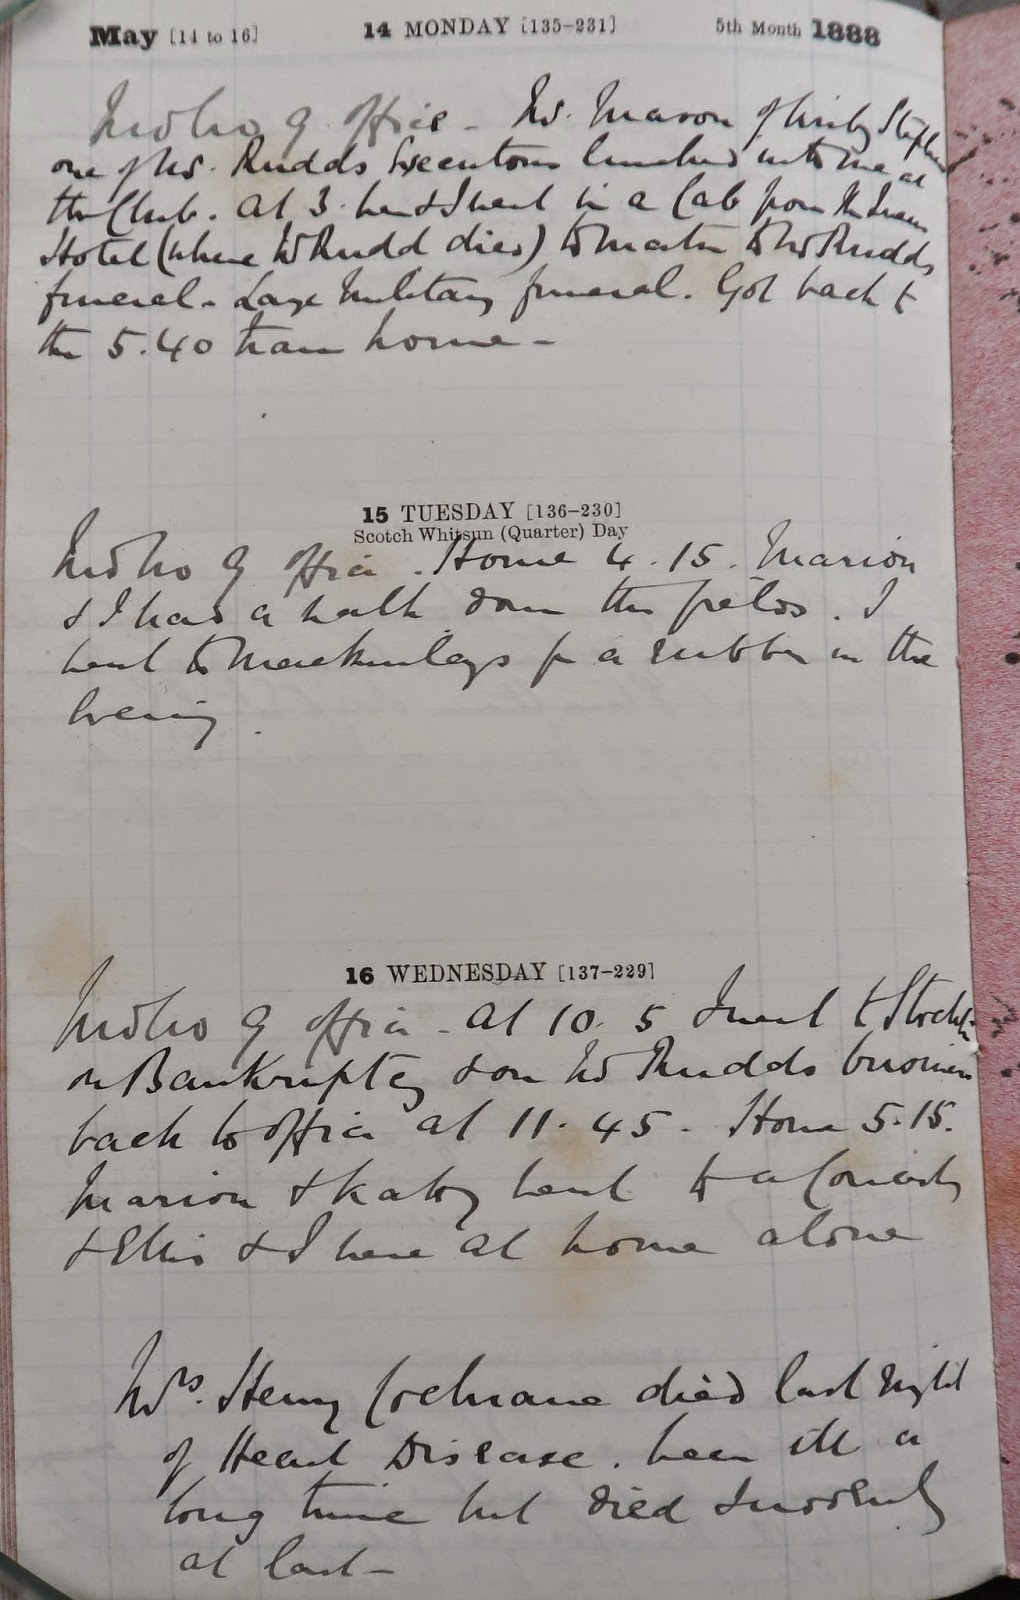 May [14 to 16] 14 MONDAY [135-231] 5th Month 1888
office - Mr. Mason of Kirkby Stephen
one of Mr. Rudds Executors lunched with me at
the Club. at 3. he & I went in a Cab from the
Hotel (where Mr Rudd died) to Marton to Mr Rudds
funeral - Large Military funeral. Got back to
the 5.40 train home -
15 TUESDAY [136-230]
Scotch Whitsun (Quarter) Day
office. Home 4.15. Marion
& I had a walk down the fields. I
went to Mackinlays for a rubber in the
Evening.
16 WEDNESDAY [137-229]
office - at 10.5 I went to Stockton
on Bankruptcy & on Mr Rudds business
back to office at 11.45 - Home 5.15.
Marion & Katy went to a Comedy
& Ellis & I were at home alone
Mrs. Henry Cochrane died last night
of Heart Disease. been ill a
long time but died suddenly
at last -